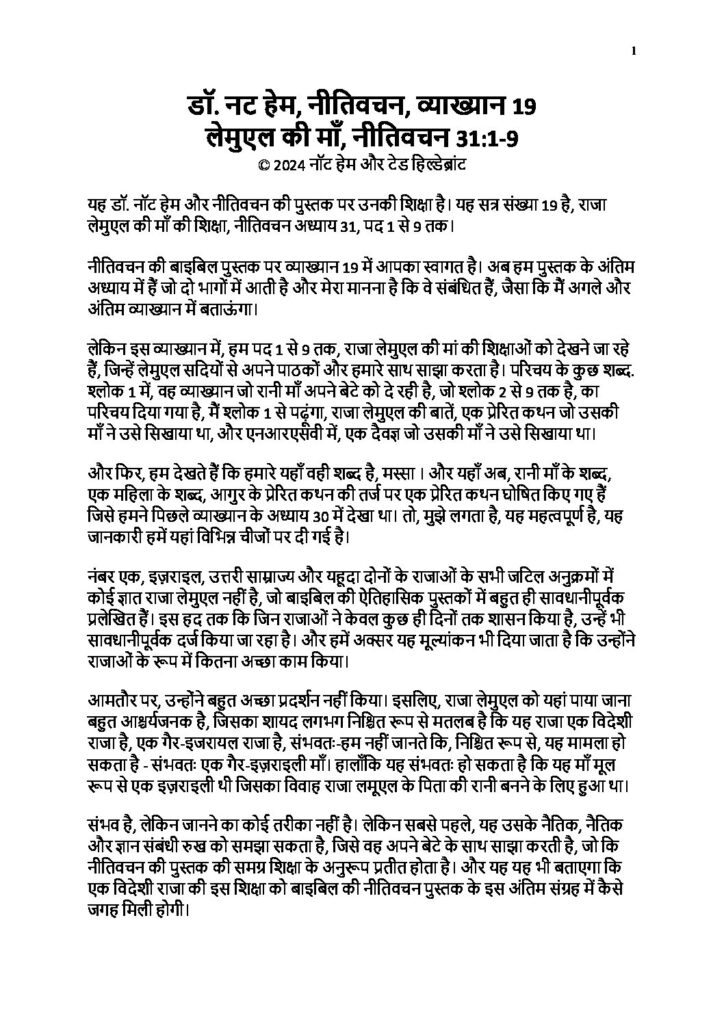 1
डॉ. नट हेम, नीतिवचन, व्याख्यान 19
लेमुएल की माँ, नीतिवचन 31:1-9
© 2024 नॉट हेम और टेड हिल्डेब्रांट
यह डॉ. नॉट हेम और नीतिवचन की पुस्तक पर उनकी शिक्षा है। यह सत्र संख्या 19 है, राजा
लेमुएल की माँ की शिक्षा, नीतिवचन अध्याय 31, पद 1 से 9 तक।
नीतिवचन की बाइबिल पुस्तक पर व्याख्यान 19 में आपका स्वागत है। अब हम पुस्तक के अंतिम
अध्याय में हैं जो दो भागों में आती है और मेरा मानना है कि वे संबंधित हैं, जैसा कि मैं अगले और
अंतिम व्याख्यान में बताऊंगा।
लेकिन इस व्याख्यान में, हम पद 1 से 9 तक, राजा लेमुएल की मां की शिक्षाओं को देखने जा रहे
हैं, जिन्हें लेमुएल सदियों से अपने पाठकों और हमारे साथ साझा करता है। परिचय के कुछ शब्द.
श्लोक 1 में, वह व्याख्यान जो रानी माँ अपने बेटे को दे रही है, जो श्लोक 2 से 9 तक है, का
परिचय दिया गया है, मैं श्लोक 1 से पढ़ूंगा, राजा लेमुएल की बातें, एक प्रेरित कथन जो उसकी
माँ ने उसे सिखाया था, और एनआरएसवी में, एक दैवज्ञ जो उसकी माँ ने उसे सिखाया था।
और फिर, हम देखते हैं कि हमारे यहाँ वही शब्द है, मस्सा । और यहाँ अब, रानी माँ के शब्द,
एक महिला के शब्द, आगुर के प्रेरित कथन की तर्ज पर एक प्रेरित कथन घोषित किए गए हैं
जिसे हमने पिछले व्याख्यान के अध्याय 30 में देखा था। तो, मुझे लगता है, यह महत्वपूर्ण है, यह
जानकारी हमें यहां विभिन्न चीजों पर दी गई है।
नंबर एक, इज़राइल, उत्तरी साम्राज्य और यहूदा दोनों के राजाओं के सभी जटिल अनुक्रमों में
कोई ज्ञात राजा लेमुएल नहीं है, जो बाइबिल की ऐतिहासिक पुस्तकों में बहुत ही सावधानीपूर्वक
प्रलेखित हैं। इस हद तक कि जिन राजाओं ने केवल कुछ ही दिनों तक शासन किया है, उन्हें भी
सावधानीपूर्वक दर्ज किया जा रहा है। और हमें अक्सर यह मूल्यांकन भी दिया जाता है कि उन्होंने
राजाओं के रूप में कितना अच्छा काम किया।
आमतौर पर, उन्होंने बहुत अच्छा प्रदर्शन नहीं किया। इसलिए, राजा लेमुएल को यहां पाया जाना
बहुत आश्चर्यजनक है, जिसका शायद लगभग निश्चित रूप से मतलब है कि यह राजा एक विदेशी
राजा है, एक गैर-इजरायल राजा है, संभवतः-हम नहीं जानते कि, निश्चित रूप से, यह मामला हो
सकता है - संभवतः एक गैर-इज़राइली माँ। हालाँकि यह संभवतः हो सकता है कि यह माँ मूल
रूप से एक इज़राइली थी जिसका विवाह राजा लमूएल के पिता की रानी बनने के लिए हुआ था।
संभव है, लेकिन जानने का कोई तरीका नहीं है। लेकिन सबसे पहले, यह उसके नैतिक, नैतिक
और ज्ञान संबंधी रुख को समझा सकता है, जिसे वह अपने बेटे के साथ साझा करती है, जो कि
नीतिवचन की पुस्तक की समग्र शिक्षा के अनुरूप प्रतीत होता है। और यह यह भी बताएगा कि
एक विदेशी राजा की इस शिक्षा को बाइबिल की नीतिवचन पुस्तक के इस अंतिम संग्रह में कैसे
जगह मिली होगी।